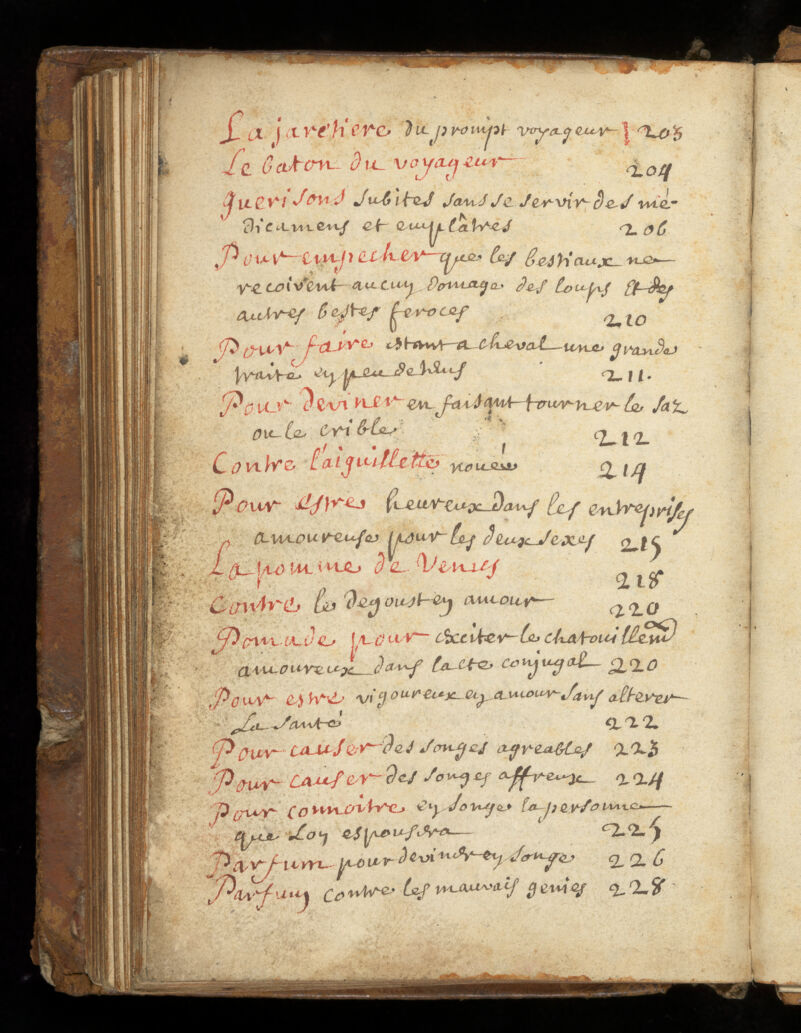 La jaretiere du prompt voyageur 203
Le baton du voyageur 204
guerisons subites sans se servir des me-
dicamens et emplâtres 206
Pour empecher que les bestiaux ne
recoivent aucuy domage des loups et des
autres bestes feroces 210
Pour faire estant a cheval une grande
traite ey peu de
211.
Pour deviner en faisant tourner le saz
ou le crible 212
Contre l'aiguillette nouée 214
Pour estre heureux dans les entreprises
amoureuse pour les deux sexes 215
La pomme de Venus 218
Contre le degoust ey amour 220
Pomade pour exciter le chatouillem
amoureux dans lacte conjugal 220
Pour estre vigoureux ey amour sans alterer
La santé 222
Pour causer des songes agreables 223
Pour causer des songes affreux 224
Pour connoitre ey songe la personne
que Loy espousera 225
Parfum pour deviner ey songe 226
Parfuy contre les mauvais genies 228